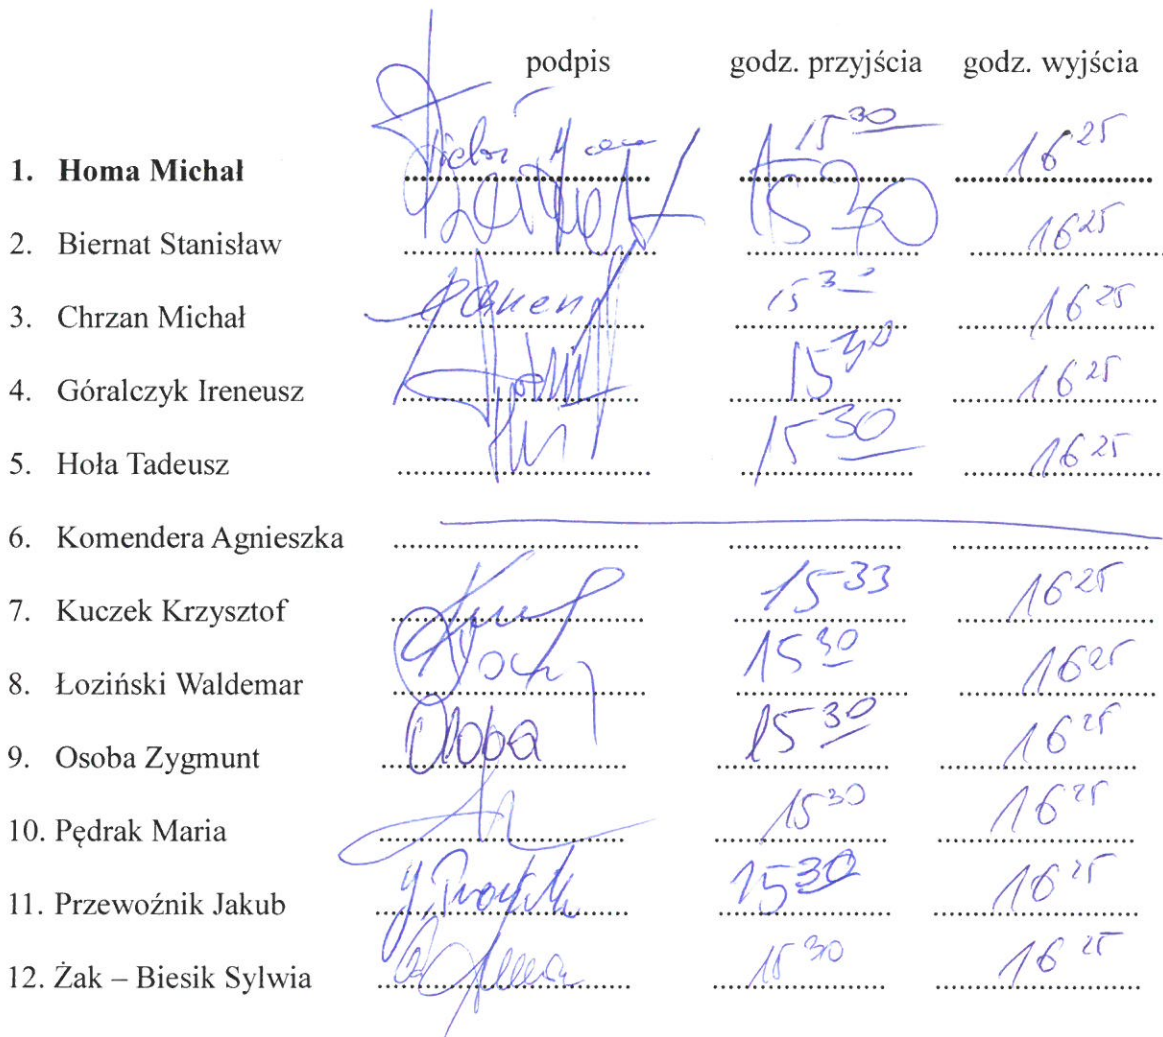 podpis godz. przyjścia godz. wyjścia
1. Homa Michał 15 30 16 25
2. Biernat Stanisław 15 30 16 25
3. Chrzan Michał 15 30 16 25
4. Góralczyk Ireneusz 15 30 16 25
5. Hoła Tadeusz 15 30 16 25
6. Komendera Agnieszka
7. Kuczek Krzysztof 15 33 16 25
8. Łoziński Waldemar 15 30 16 25
9. Osoba Zygmunt Osoba 15 30 16 25
10. Pędrak Maria 15 30 16 25
11. Przewoźnik Jakub 15 30 16 25
12. Żak – Biesik Sylwia 15 30 16 25